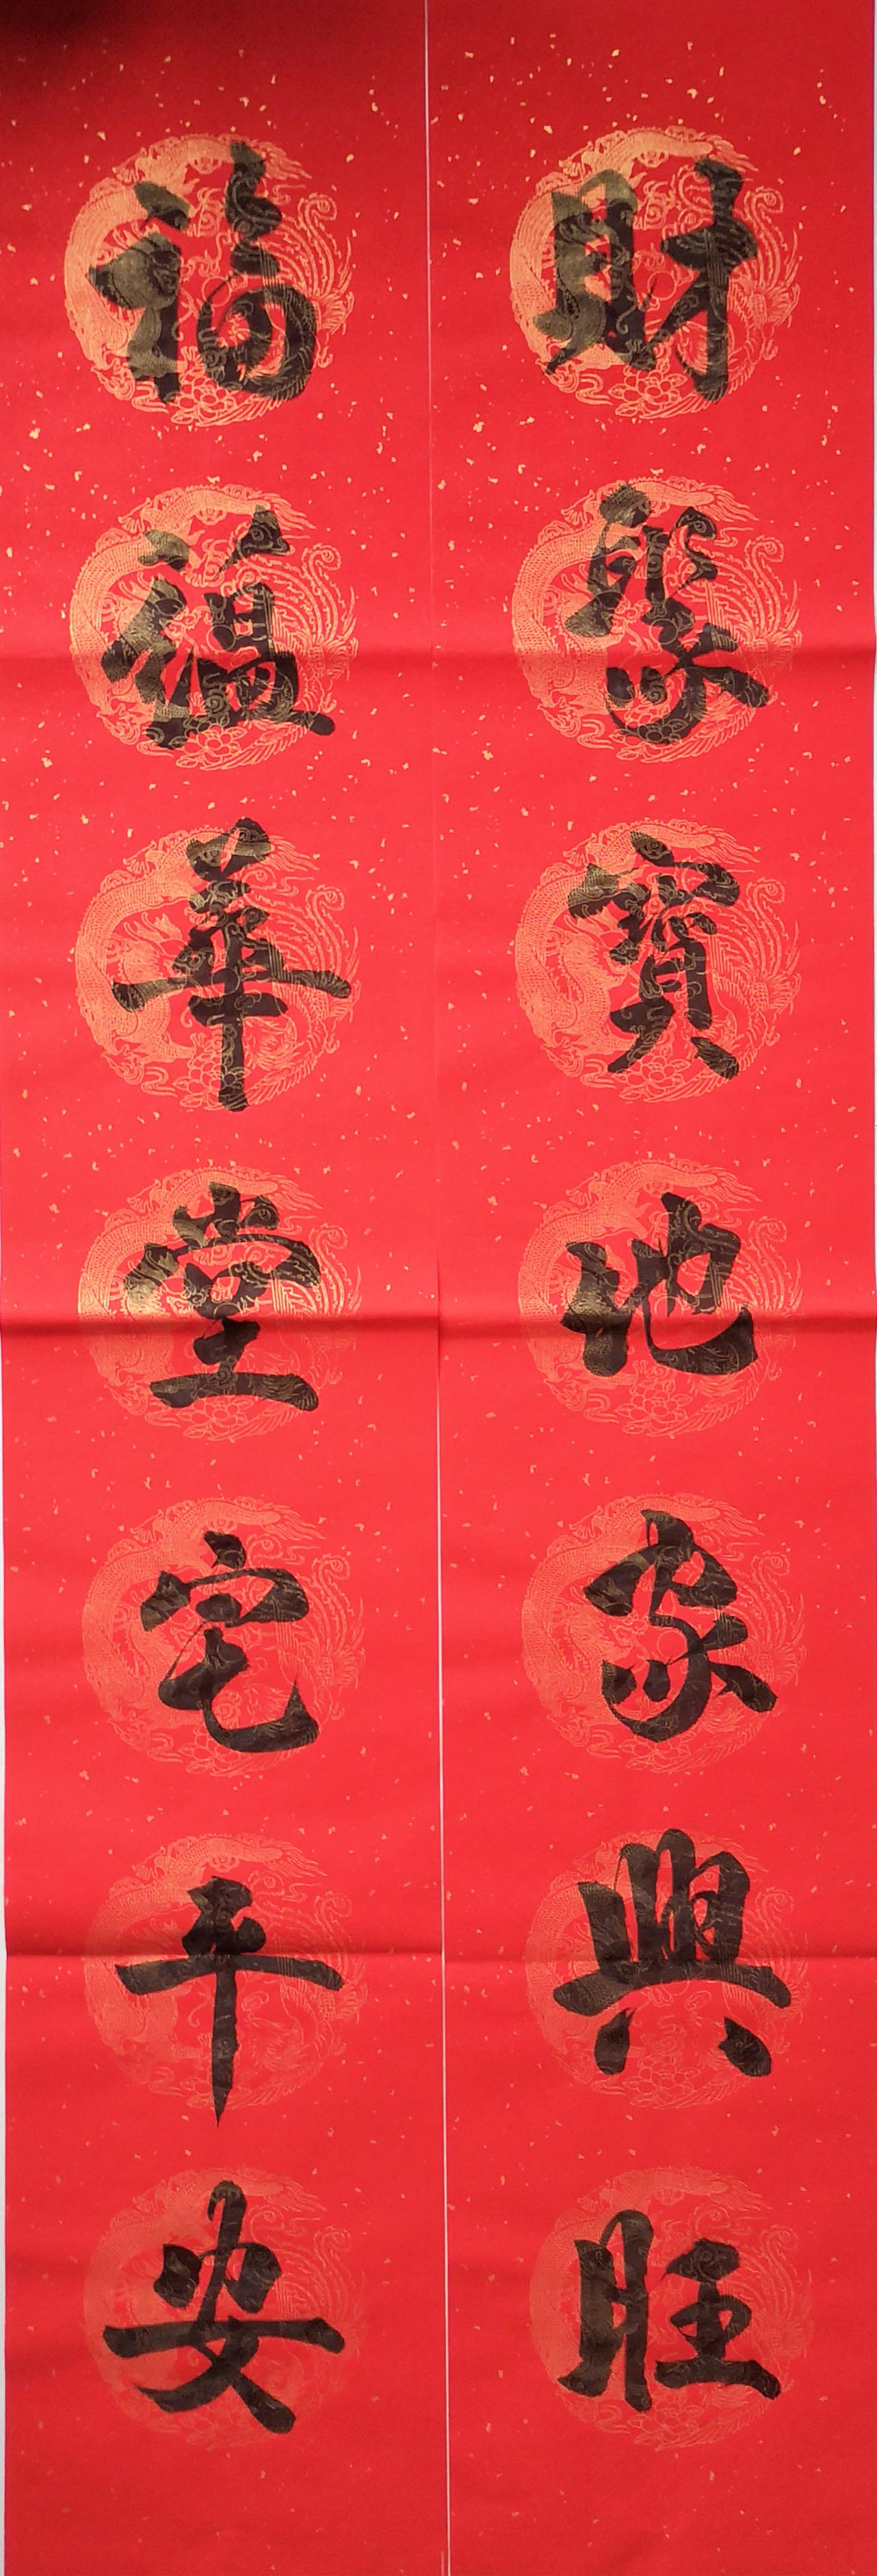 財聚寶地家興旺
福蘊華堂宅平安